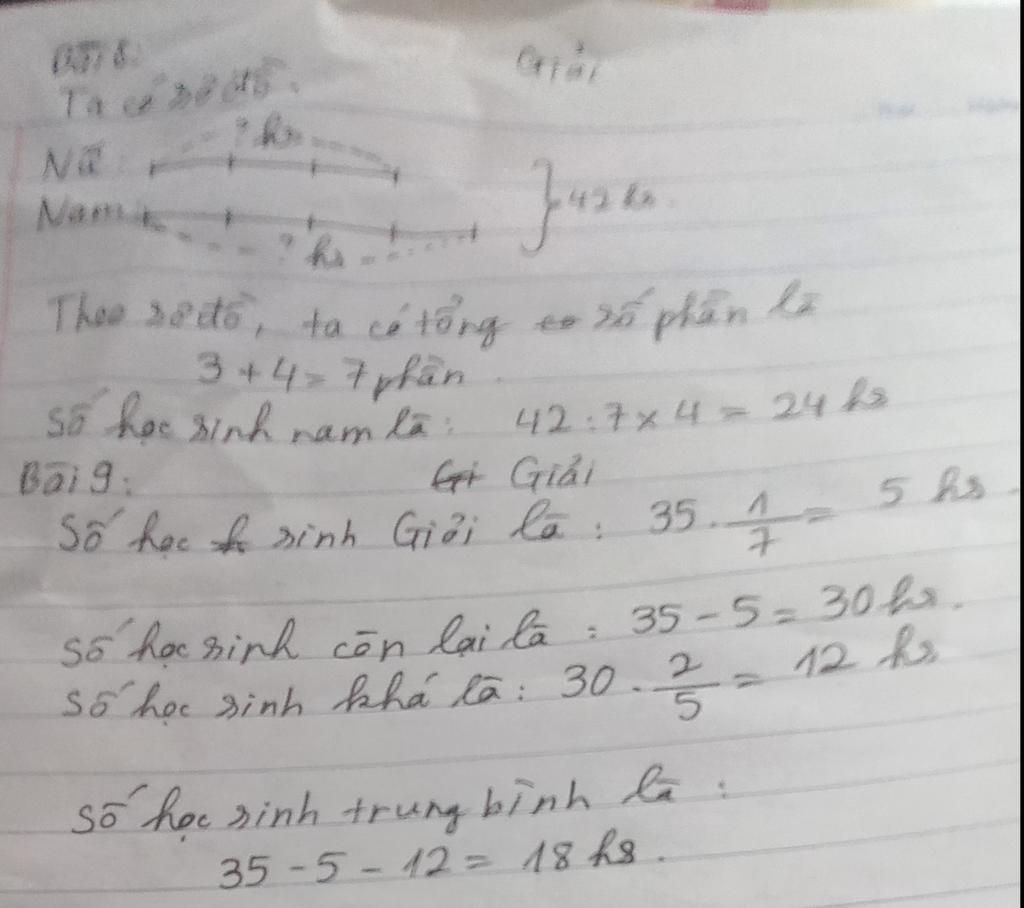 Bài 8: Giải
Ta có sơ đồ.
? hs
Nữ:
Nam: } 42 hs.
? hs
Theo sơ đồ, ta có tổng số phần là
3 + 4 = 7 phần.
Số học sinh nam là: 42 : 7 x 4 = 24 hs
Bài 9: Giải
Số học sinh Giỏi là: 35 . 1/7 = 5 hs.
Số học sinh còn lại là: 35 - 5 = 30 hs.
Số học sinh khá là: 30 . 2/5 = 12 hs
Số học sinh trung bình là:
35 - 5 - 12 = 18 hs.